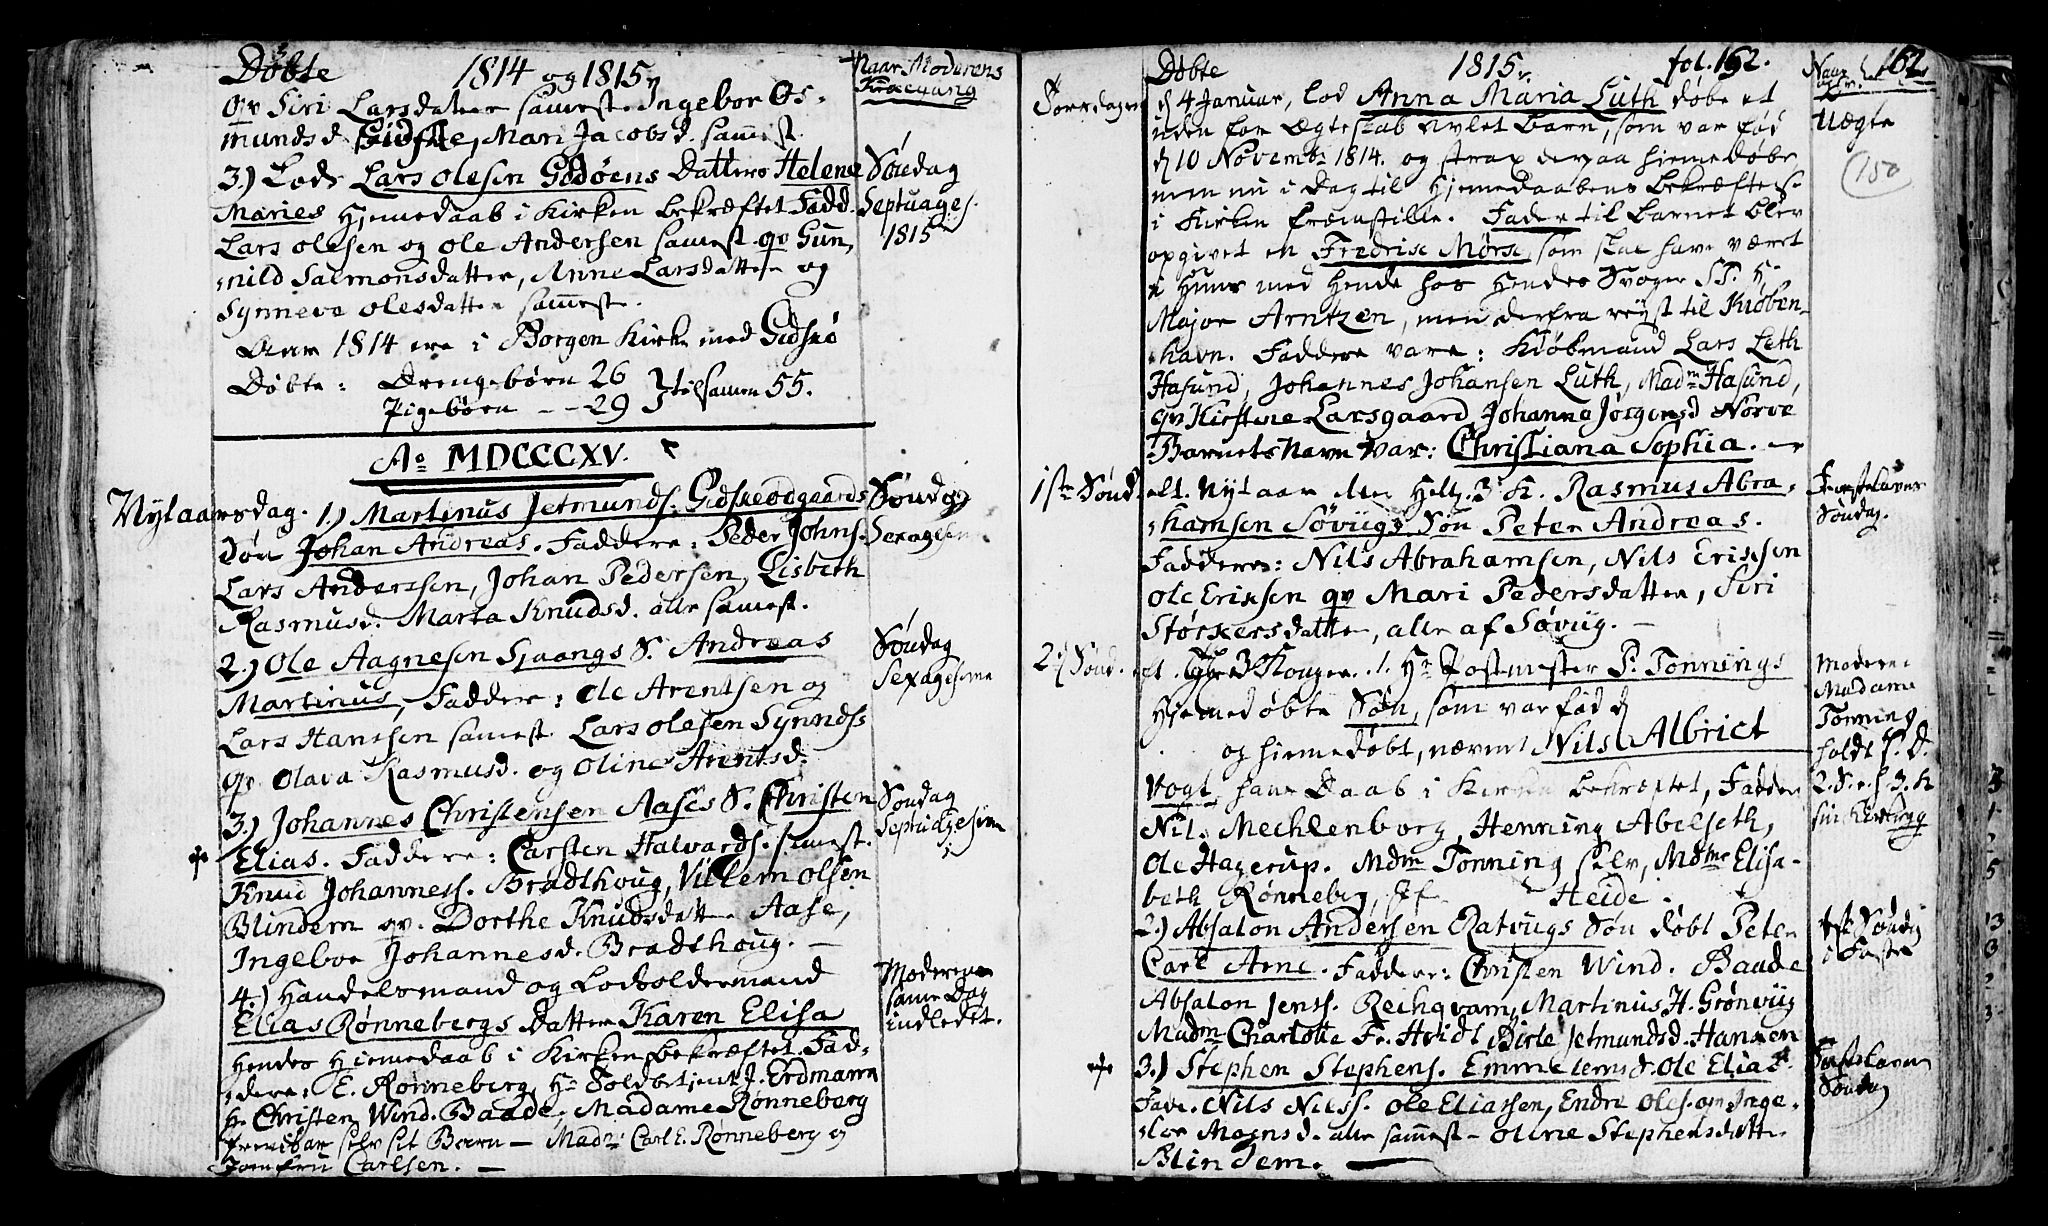 Døbte 1814 og 1815 Naar Moderens
Kirkegang
qv Siri Larsdatter samest. Ingebor Os-
munds d. Gidske, Mari Jacobsd. samest.
3.) Lods Lars Olesen Godøens Datters Helene
Maries Hjemedaab i Kirken bekræftet Fadd.
Lars Olesen og Ole Andersen samest. qv Gun,
nild Salmonsdatter, Anne Larsdatter og
Synneva Olesdatter samest.
Søndag
Septuages.
1815
Aar 1814 ere i Borgen Kirke med Gidskø
Døbte: Drengebørn 26
Pigebørn -- 29 } tilsamen 55.
Ao MDCCCXV.
Nytaarsdag. 1.) Martinus Jetmunds. Gidskeødgaards
Søn Johan Andreas. Faddere: Peder Johns.
Lars Anderssen, Johan Pedersen, Lisbeth
Rasmusd. Marta Knudsd. alle samest.
Søndag
Sexagesim
2.) Ole Aagnesen Sjaangs S. Andreas
Martinus, Faddere: Ole Arentsen og
Lars Hanssen samest. Lars Olesen Synnds
qv Olava Rasmusd. og Oline Arentsd.
Søndag
Sexagesima
3.) Johannes Christensen Aases S. Christen
Elias. Faddere: Carsten Halvards. samest.
Knud Johanness. Bradthoug, Villem Olsen
Blindem qv. Dorthe Knudsdatt. Aase,
Ingebor Johannesd. Bradthoug. —
Søndag
Septuagesima
4.) Handelsmand og Lodsoldermand
Elias Rønnebergs Datter Karen Elisa
Hendes Hjemedaab i Kirken bekræftet. Fad-
dere: E. Rønneberg, Hr Toldbetjent J. Erdmann
Hr Christen Wind. Baade, Madame Rønneberg
frembar selv sit Barn — Madm: Carl E. Rønneberg og
Jomfru Carlsen. —
Moderen
same Dag
indledet.
Døbte 1815. fol. 162. Naar 162
Torsdagen d 4 Januar, lod Anna Maria Luth døbe et
uden for Ægteskab avlet Barn, som var fød
d 10 Novembr 1814. og strax derpaa hiemedøbt
men nu i Dag til Hjemedaabens bekræftelse
i Kirken fremstillet. Fader til Barnet blev
opgivet en Fredrik Mørse, som skal have været
i Huus med Hende hos Hendes Svoger S.T. Hr
Major Arntzen, men derfra reyst til Kiøben-
havn. Faddere vare: Kiøbmand Lars Leth
Hasund, Johannes Johansen Luth, Madm Hasund,
qv Kirstene Larsgaard, Johanne Jørgensd Nørve
Barnets Navn var: Christiana Sophia. —
Uægte
150
1ste Sønd. eft. Nytaar den Hell. 3 K. Rasmus Abra-
hamsen Søvügs Søn Peter Andreas.
Faddere: Nils Abrahamsen, Nils Erixsen
Ole Erixsen qv Mari Pedersdatter, Siri
Størkersdatter, alle af Søvüg. —
Fastelavns
Søndag.
2d Sønd. eft. 3 Konger. 1. Hr Postmester P. Tonnings
Hjemedøbte Søn, som var fød d
og hiemedøbt, nævnt Nils Albrict
Vogt, hans Daab i Kirken bekræftet, Fadder
Nil. Mechlenborg, Henning Abelseth,
Ole Hagerup. Mdm Tonning selv, Mdme Elisa-
beth Rønneberg, Jf. Heide.
Moderen
Madame
Tonning
holdt S. D.
2. S. e. h. 3. K
sin Kirkegg
2.) Absalon Andersen Ratvugs Søn døbt Peter
Carl Arne. Faddere: Christen Wind. Baade
Absalon Jenss. Reihqvam, Martinus H. Grønvüg
Madm Charlotte Fr. Hvidt Birte Jetmundsd. Hansen
1ste Søndag
i Faste
3.) Stephen Stephens. Emmelems S. Ole Elias.
Fadd. Nils Nilss. Ole Eliassen, Endre Oles. om Inge-
bor Mogensd. alle samest — Oline Stephensdatte
Blindem. —
Fastelavns
Søndag